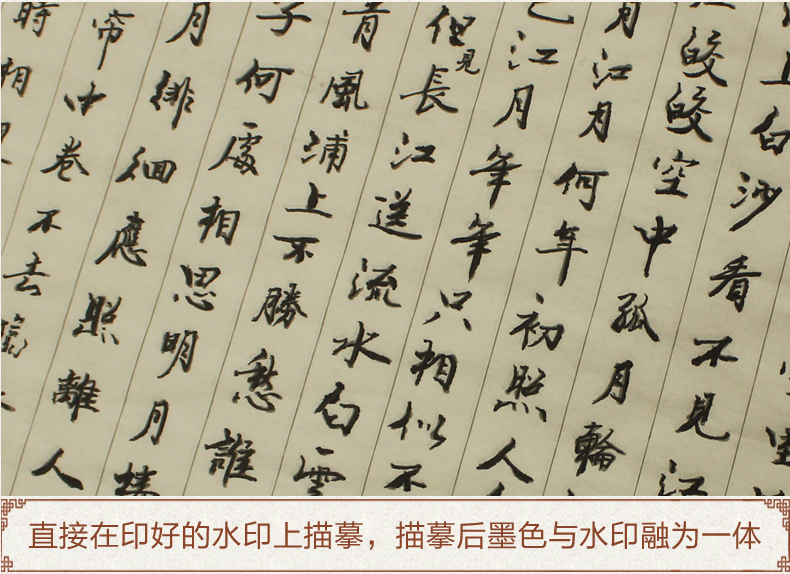 上白沙看不見江
皎皎空中孤月輪
月江月何年初照人
已江月年年只相似不
但見長江送流水白雲
青風浦上不勝愁誰
子何處相思明月樓
月徘徊應照離人
帘中卷不去
時相
直接在印好的水印上描摹，描摹后墨色与水印融为一体